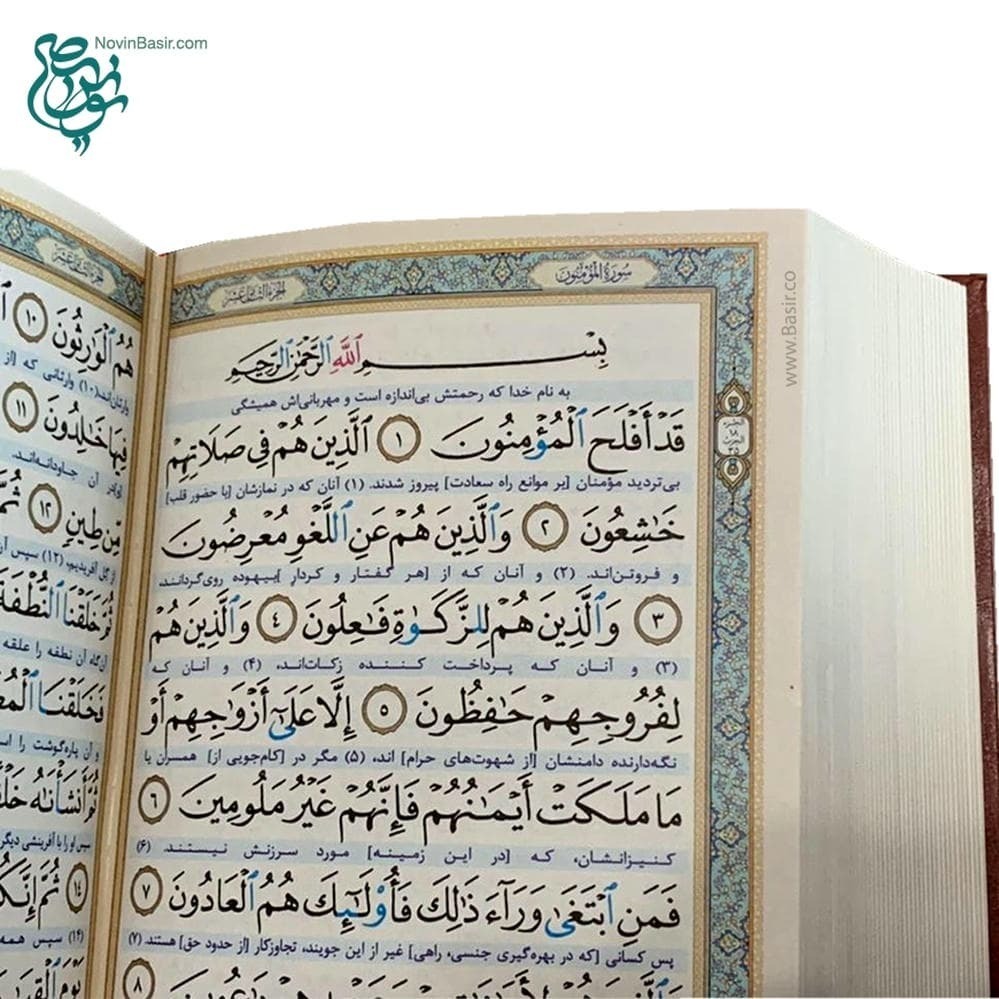 NovinBasir.com
www.Basir.co
سُورَةُ المُؤْمِنُونَ
الجُزءُ الثّامِنُ عَشَرَ
بِسْمِ ٱللَّهِ ٱلرَّحْمَٰنِ ٱلرَّحِيمِ
به نام خدا که رحمتش بی‌اندازه است و مهربانی‌اش همیشگی
قَدْ أَفْلَحَ ٱلْمُؤْمِنُونَ ١ ٱلَّذِينَ هُمْ فِى صَلَاتِهِمْ
بی‌تردید مؤمنان [بر موانع راه سعادت] پیروز شدند. (۱) آنان که در نمازشان [با حضور قلب]
خَٰشِعُونَ ٢ وَٱلَّذِينَ هُمْ عَنِ ٱللَّغْوِ مُعْرِضُونَ
و فروتن‌اند. (۲) و آنان که از [هر گفتار و کردارِ ]بیهوده روی‌گردانند،
٣ وَٱلَّذِينَ هُمْ لِلزَّكَوٰةِ فَٰعِلُونَ ٤ وَٱلَّذِينَ هُمْ
(۳) و آنان که پرداخت کننده زکات‌اند، (۴) و آنان که
لِفُرُوجِهِمْ حَٰفِظُونَ ٥ إِلَّا عَلَىٰٓ أَزْوَٰجِهِمْ أَوْ
نگه‌دارنده دامنشان [از شهوت‌های حرام] اند، (۵) مگر در [کام‌جویی از] همسران یا
مَا مَلَكَتْ أَيْمَٰنُهُمْ فَإِنَّهُمْ غَيْرُ مَلُومِينَ ٦
کنیزانشان، که [در این زمینه] مورد سرزنش نیستند. (۶)
فَمَنِ ٱبْتَغَىٰ وَرَآءَ ذَٰلِكَ فَأُو۟لَٰٓئِكَ هُمُ ٱلْعَادُونَ ٧
پس کسانی [که در بهره‌گیری جنسی، راهی] غیر از این جویند، تجاوزکار [از حدود حق] هستند. (۷)
٨
هُمُ ٱلْوَٰرِثُونَ ١٠
(۱۰) وارثانی که [از
فِيهَا خَٰلِدُونَ ١١
آن جاودانه‌اند.
مِّن طِينٍ ١٢ ثُمَّ
از گِل آفریدیم، (۱۲) سپس
ثُمَّ خَلَقْنَا ٱلنُّطْفَةَ
آن‌گاه آن نطفه را علقه
فَخَلَقْنَا
و آن پاره‌گوشت را
ثُمَّ أَنشَأْنَٰهُ
سپس او را با آفرینشی دیگر
١٤ ثُمَّ
(۱۴) سپس همه
يَوْمَ